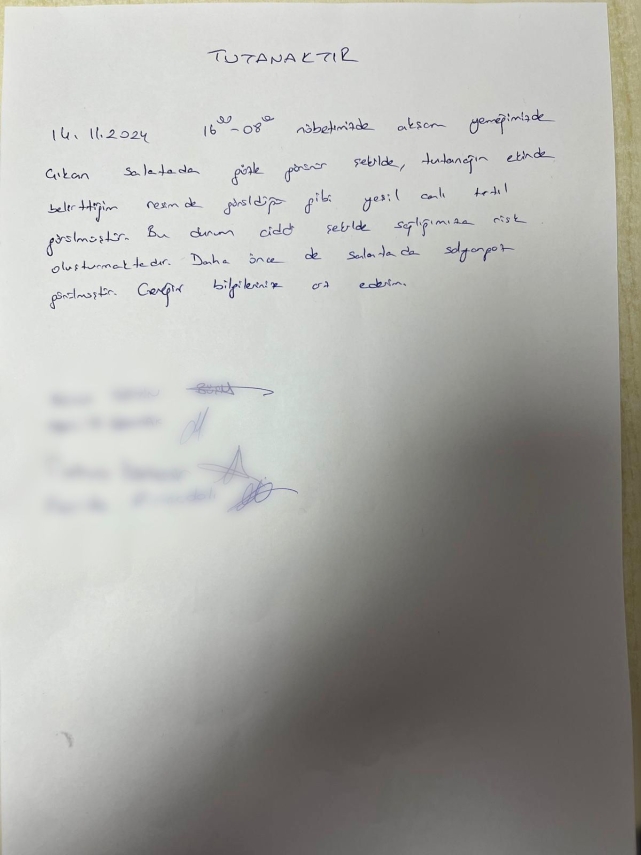 TUTANAKTIR
14.11.2024 16⁰⁰-08⁰⁰ nöbetimizde akşam yemeğimizde
Çıkan salatada gözle görünür şekilde, tutanağın ekinde
belirttiğim resimde görüldüğü gibi yeşil canlı tırtıl
görülmüştür. Bu durum ciddi şekilde sağlığımıza risk
oluşturmaktadır. Daha önce de salatada salyangoz
görülmüştür. Gereğini bilgilerinize arz ederim.